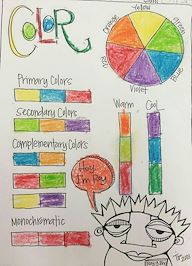 COLOR
Yellow
Orange
Green
Red
Blue
Violet
Primary Colors
Warm
Cool
Secondary Colors
Complementary Colors
Hey
I'm Ray
Monochromatic